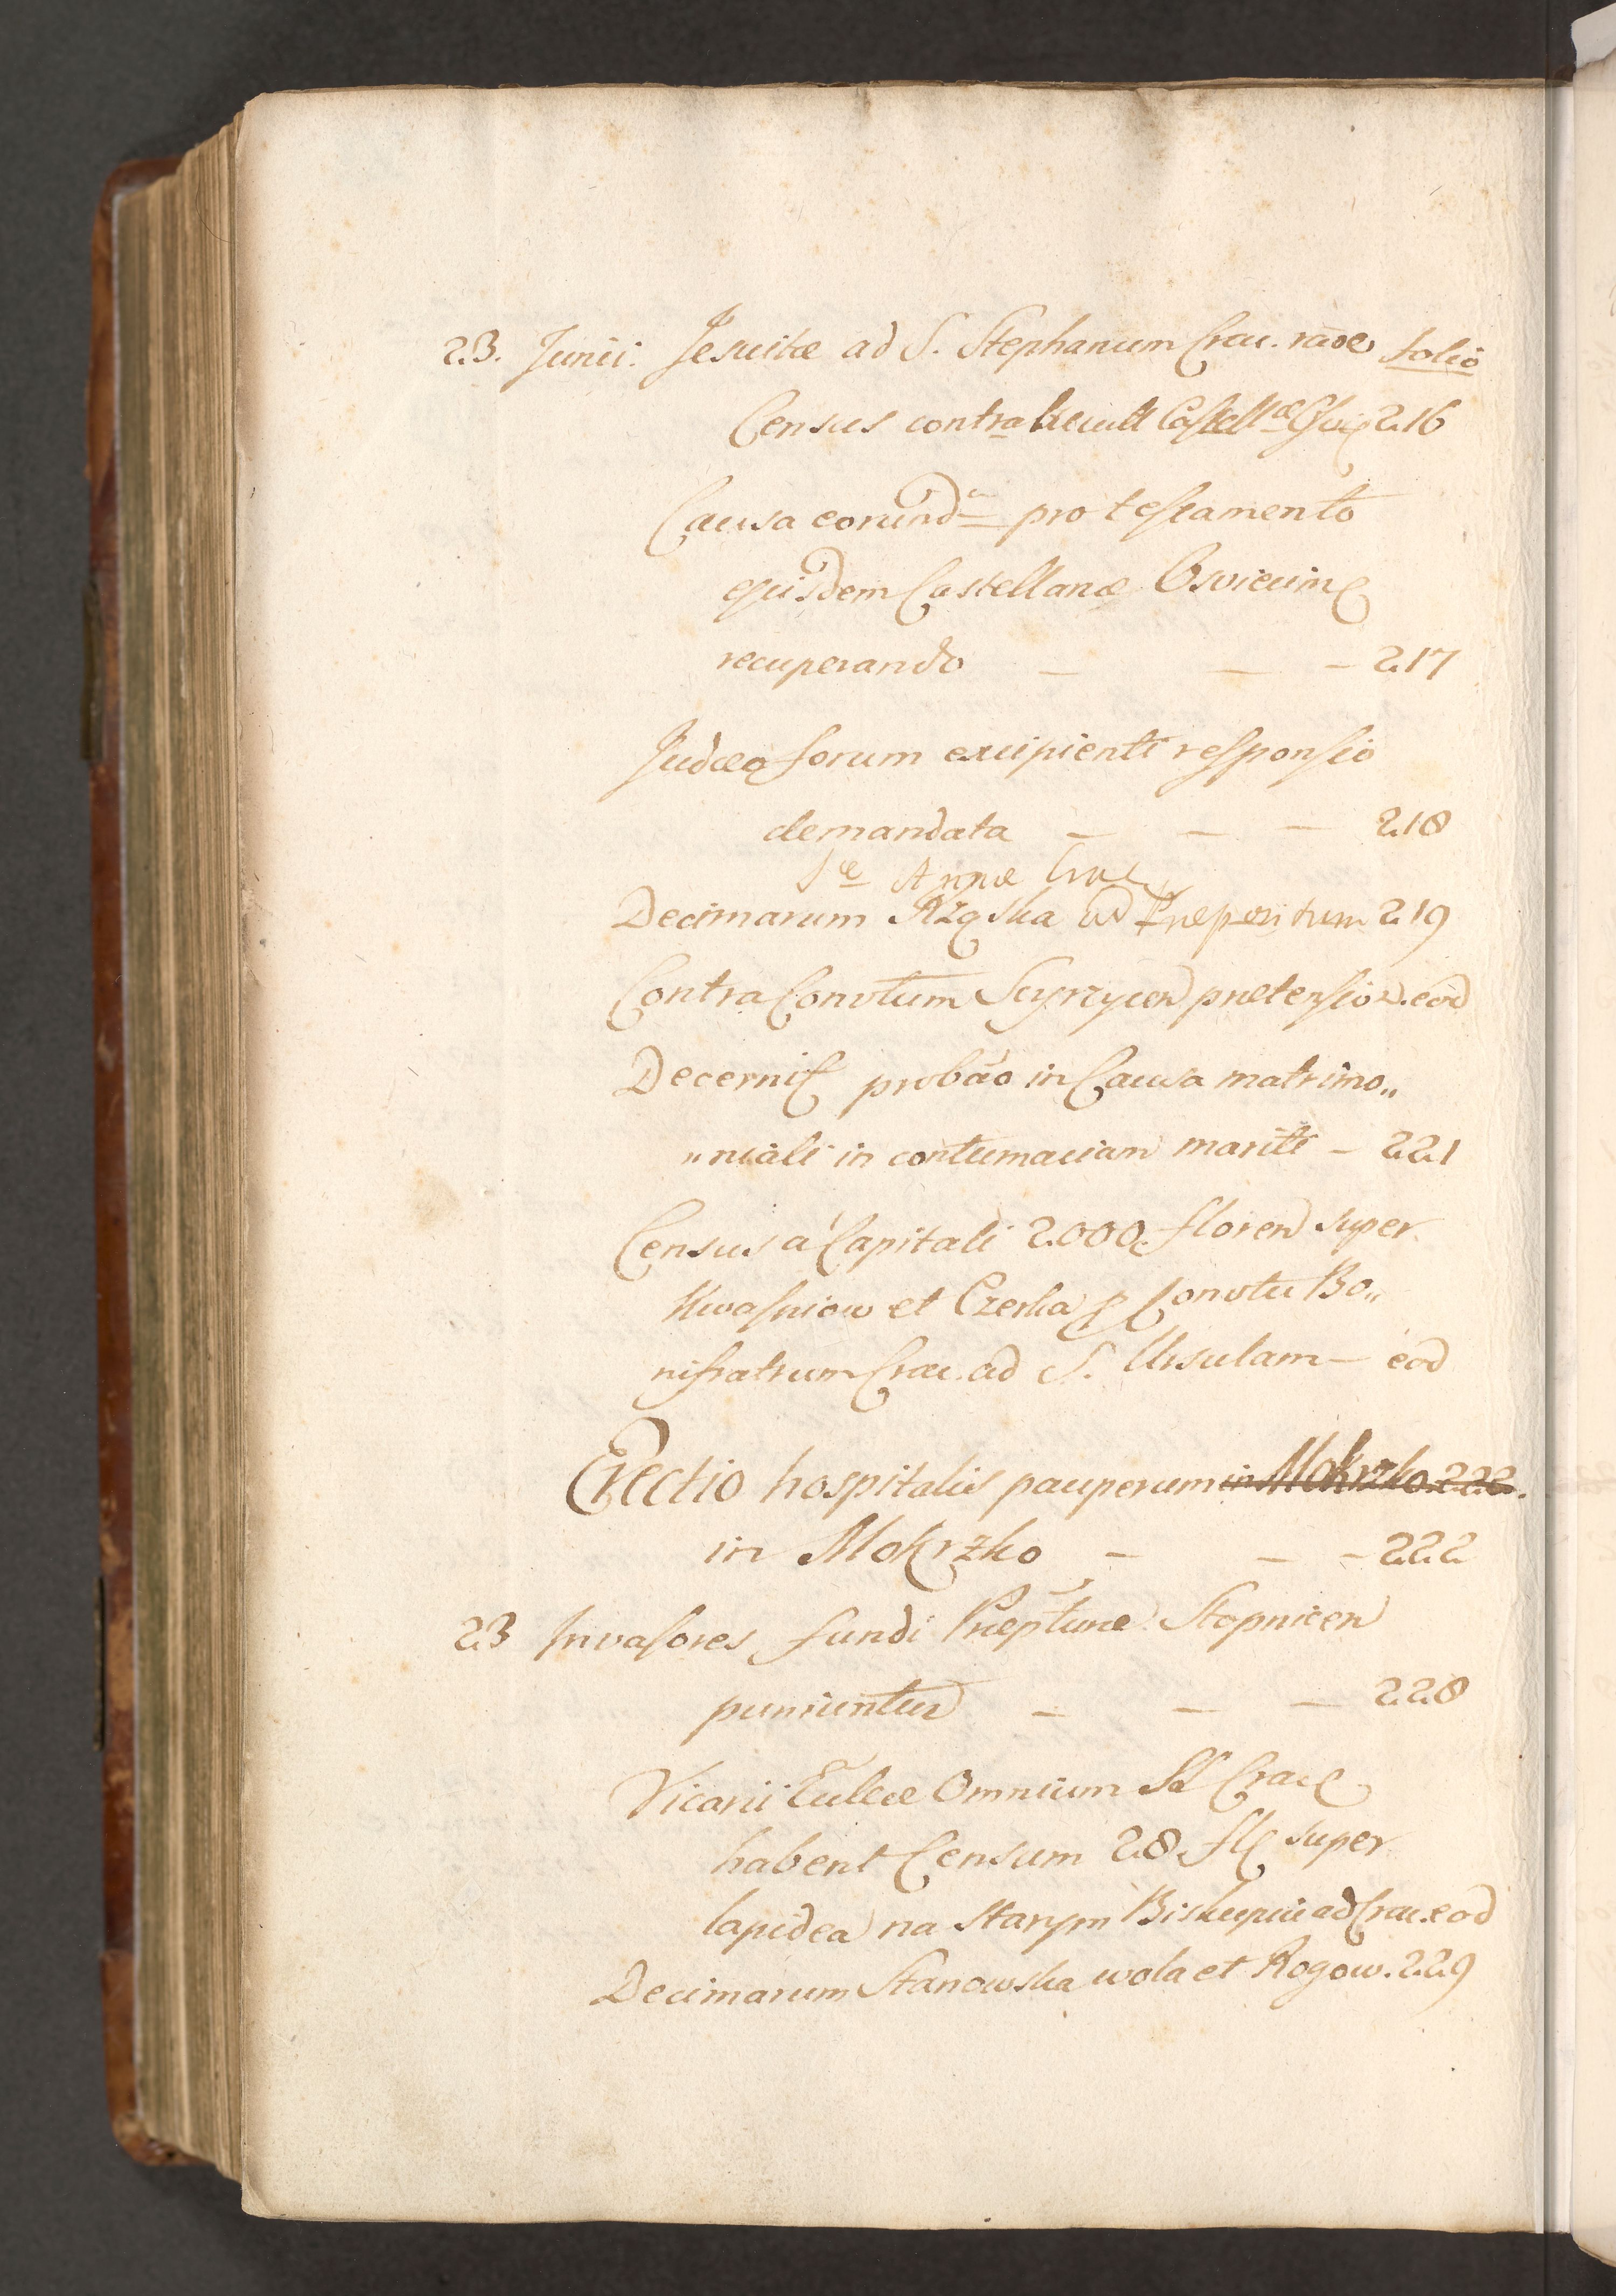 23. Junii. Jesuitæ ad S. Stephanum Crac. rãoe folio
Census contra Castellæ 216
Causa eorund͠ pro testamento
ejusdem Castellanæ Osviecim
recuperando — — — 217
Judæo forum excipienti responsio
demandata — — — 218
Sæ Annæ Crac
Decimarum Rząska ad Præpositum 219
Contra Convtum Scyrzycen prætensio. eod
Decernit probão in Causa matrimo„
„niali in contumaciam mariti — 221
Census á Capitali 2000 floren super
Kwasniow et Czerka p Convtu Bo„
nifratrum Crac. ad S. Ursulam — eod
Erectio hospitalis pauperum in Mokrzko 222.
in Mokrzko — — — 222
23 Invasores fundi Præpturæ Stopnicen
puniuntur — — — 228
Vicarii Eccliæ Omnium SS Crac
habent Censum 28 fl super
lapidea na starym Biskupiu ad Crac. eod
Decimarum Stanowska wola et Rogow. 229